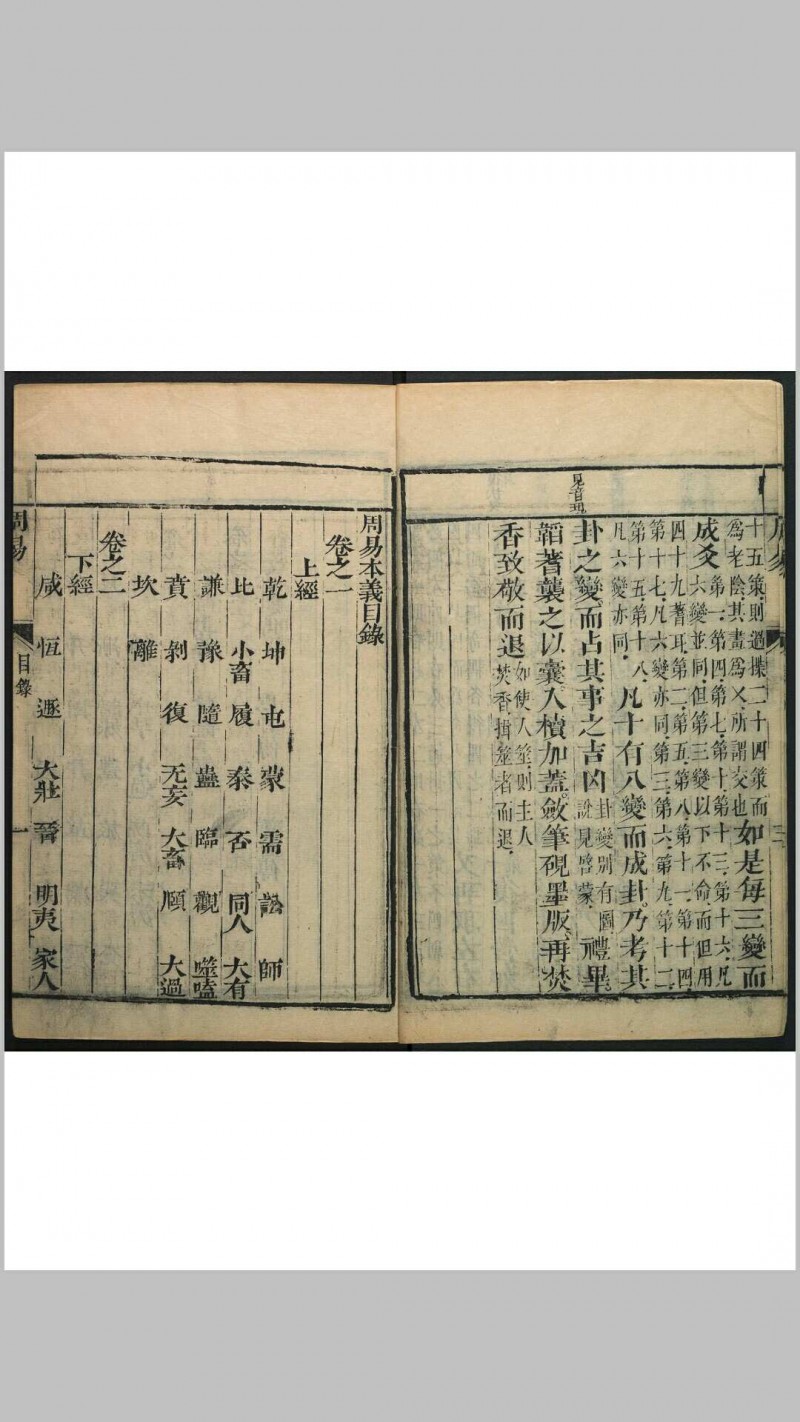 見音現
十五策則過揲二十四策而
為老陰其畫為乂所謂交也如是每三變而
成爻第一第四第七第十第十三第十六凡
六變並同但第三變以下不命而但用
四十九蓍耳第二第五第八第十一第十四
第十七凡六變亦同第三第六第九第十二
第十五第十八凡十有八變而成卦乃考其
凡六變亦同
卦之變而占其事之吉凶卦變別有圖
說見啓蒙禮畢
韜蓍襲之以囊入櫝加蓋斂筆硯墨版再焚
香致敬而退如使人筮則主人
焚香揖筮者而退
周易本義目錄
卷之一
上經
乾 坤 屯 蒙 需 訟 師
比 小畜 履 泰 否 同人 大有
謙 豫 隨 蠱 臨 觀 噬嗑
賁 剝 復 无妄 大畜 頤 大過
坎 離
卷之二
下經
咸 恆 遯 大壯 晉 明夷 家人
周易
目錄
一